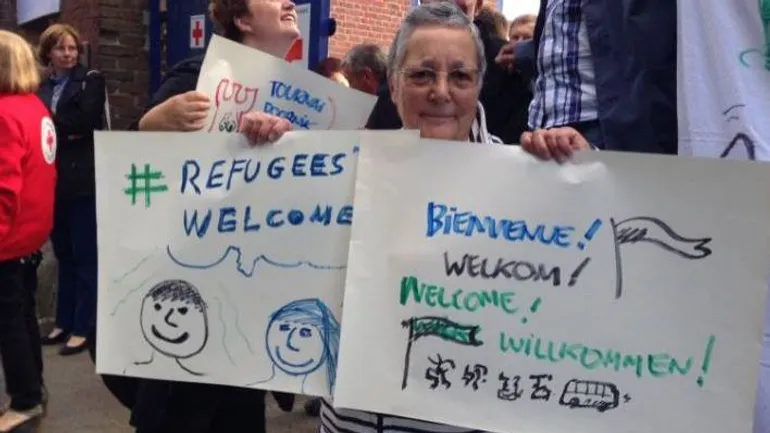 TOURNAI
DOORNIK
# REFUGEES
WELCOME
BIENVENUE!
WELKOM!
WELCOME!
WILLKOMMEN!